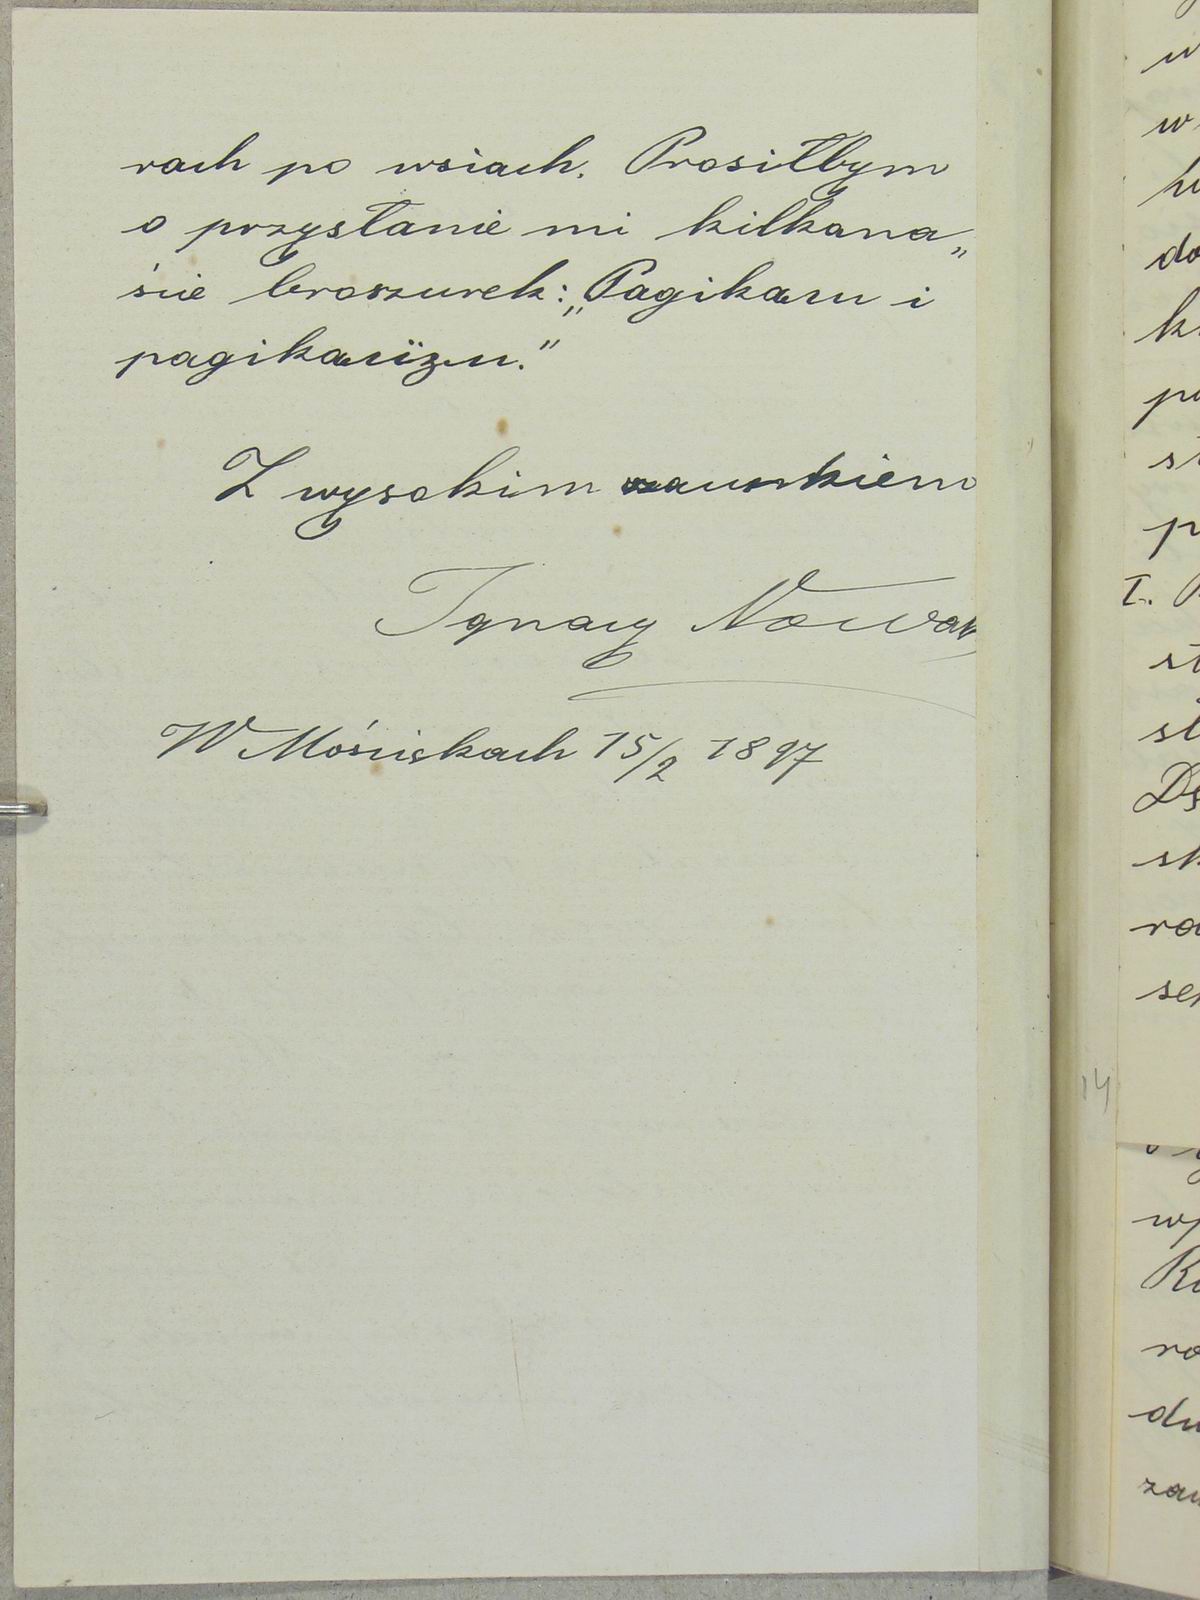 rach po wsiach. Prosiłbym
o przysłanie mi kilkana„
ście broszurek: „Pagikaru i
pagikaryzm."
Z wysokim szacunkiem
Ignacy Nowak
W Mościskach 15/2 1897
14
w
w
do
st
I.
st
sł
Ds
sk
ro
ser
wp
ro
du